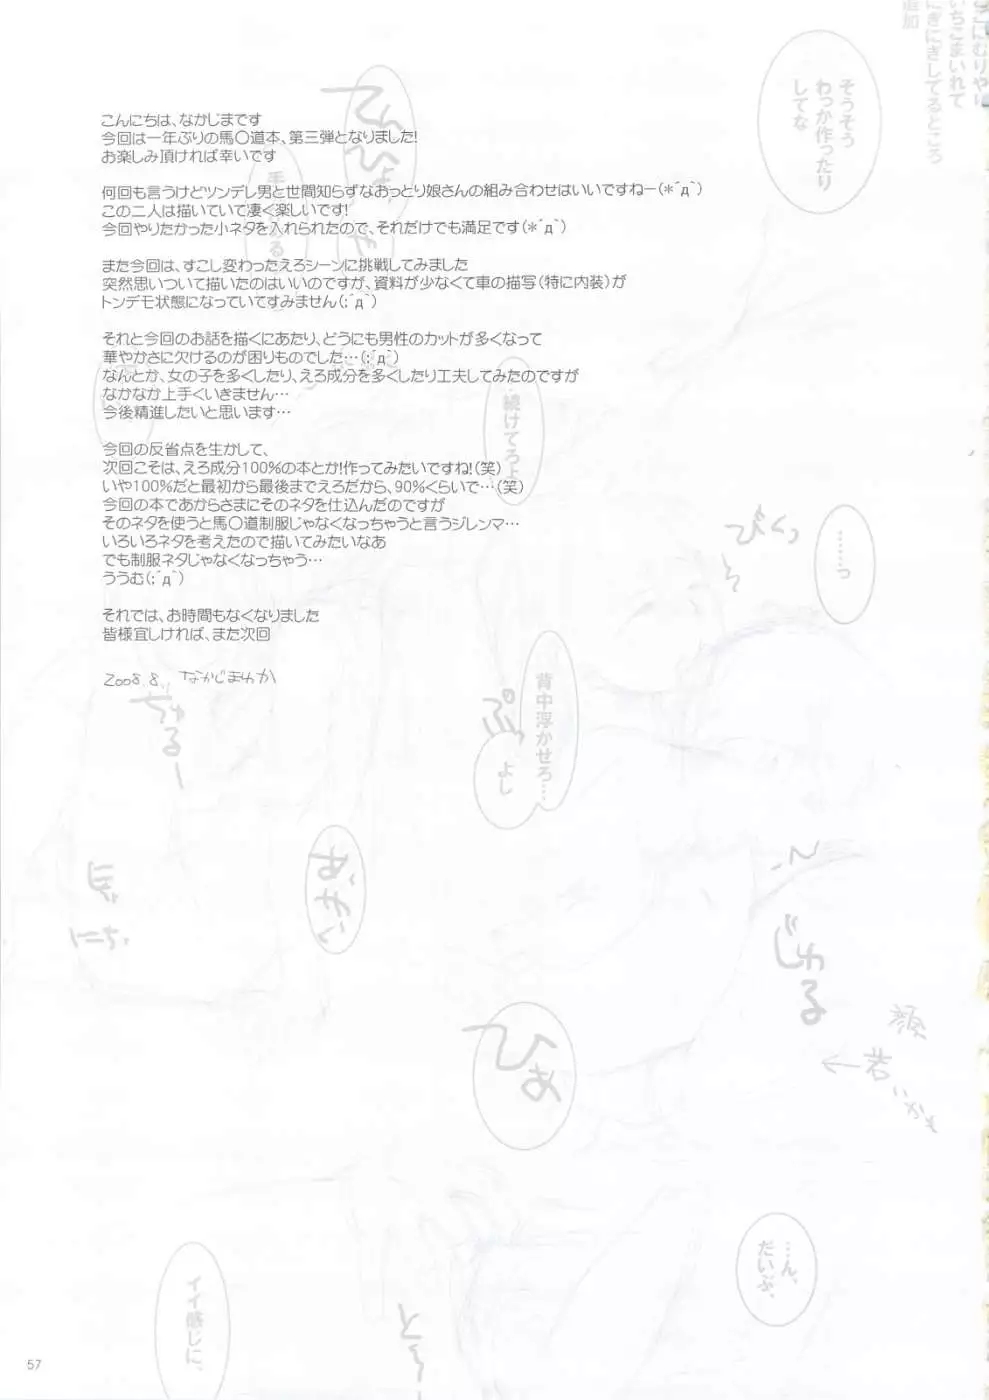 こんにちは、なかじまです
今回は一年ぶりの馬〇道本、第三弾となりました!
お楽しみ頂ければ幸いです
何回も言うけどツンデレ男と世間知らずなおっとり娘さんの組み合わせはいいですねー(*´д`)
この二人は描いていて凄く楽しいです!
今回やりたかった小ネタを入れられたので、それだけでも満足です(*´д`)
また今回は、すこし変わったえろシーンに挑戦してみました
突然思いついて描いたのはいいのですが、資料が少なくて車の描写(特に内装)が
トンデモ状態になっていてすみません(;´д`)
それと今回のお話を描くにあたり、どうにも男性のカットが多くなって
華やかさに欠けるのが困りものでした…(;´д`)
なんとか、女の子を多くしたり、えろ成分を多くしたり工夫してみたのですが
なかなか上手くいきません…
今後精進したいと思います…
今回の反省点を生かして、
次回こそは、えろ成分100%の本とか!作ってみたいですね!(笑)
いや100%だと最初から最後までえろだから、90%くらいで…(笑)
今回の本であからさまにそのネタを仕込んだのですが
そのネタを使うと馬〇道制服じゃなくなっちゃうと言うジレンマ…
いろいろネタを考えたので描いてみたいなあ
でも制服ネタじゃなくなっちゃう…
ううむ(;´д`)
それでは、お時間もなくなりました
皆様宜しければ、また次回
2008.8. なかじまゆか
ここにむりやり
いちごまいれて
にぎにぎしてるところ
追加
そうそう
わっか作ったり
してな
続けてろよ
びくっ
……っ
背中浮かせろ…
よし
ちゅるー
じゅる
ひぁ
顔
←若
いかも
…ん、
だいぶ、
イイ感じに、
57